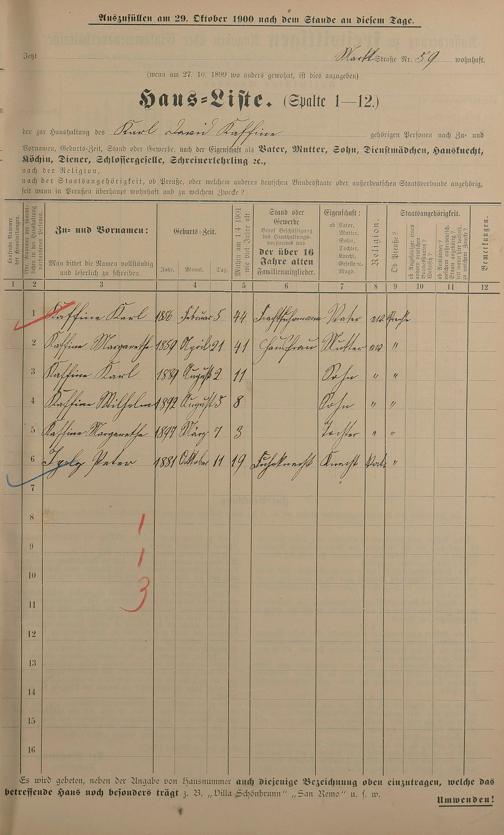 Auszufüllen am 29. Oktober 1900 nach dem Stande an diesem Tage.
Jetzt Markt Strasse Nr. 59 wohnhaft.
(wenn am 27. 10. 1899 wo anders gewohnt, ist dies anzugeben)
Haus-Liste. (Spalte 1—12.)
der zur Haushaltung des Karl David Kaffine gehörigen Personen nach Zu- und
Vornamen, Geburts-Zeit, Stand oder Gewerbe, nach der Eigenschaft als Vater, Mutter, Sohn, Dienstmädchen, Hausknecht,
Köchin, Diener, Schlossergeselle, Schreinerlehrling ꝛc.,
nach der Religion,
nach der Staatsangehörigkeit, ob Preuße, oder welchem anderen deutschen Bundesstaate oder außerdeutschen Staatsverbande angehörig,
seit wann in Preußen überhaupt wohnhaft und zu welchem Zwecke?
Zu- und Vornamen:
Man bittet die Namen vollständig und leserlich zu schreiben.
Geburts-Zeit.
Jahr. Monat. Tag.
Stand oder Gewerbe
der über 16 Jahre alten Familienmitglieder.
Eigenschaft:
ob Vater, Mutter, Sohn, Tochter, Knecht, Geselle, Magd.
Religion.
Staatsangehörigkeit.
Ob Preuße?
Bemerkungen.
1 2 3 4 5 6 7 8 9 10 11 12
1 Kaffine Karl Februar 5 44 Vater
2 Kaffine Margarethe 1859 April 21 41 Mutter
3 Kaffine Karl 1889 August 2 11 Sohn " "
4 Kaffine Wilhelm 1892 August 5 8 Sohn " "
5 Kaffine Margarethe 1897 März 7 3 Tochter " "
6 Peter 1881 Oktober 11 19 Fuhrknecht Knecht "
7
8 1
9 1
10 3
11
12
13
14
15
16
Es wird gebeten, neben der Angabe von Hausnummer auch diejenige Bezeichnung oben einzutragen, welche das
betreffende Haus noch besonders trägt z. B. „Villa Schönbrunn" „San Remo" u. s. w.
Umwenden!